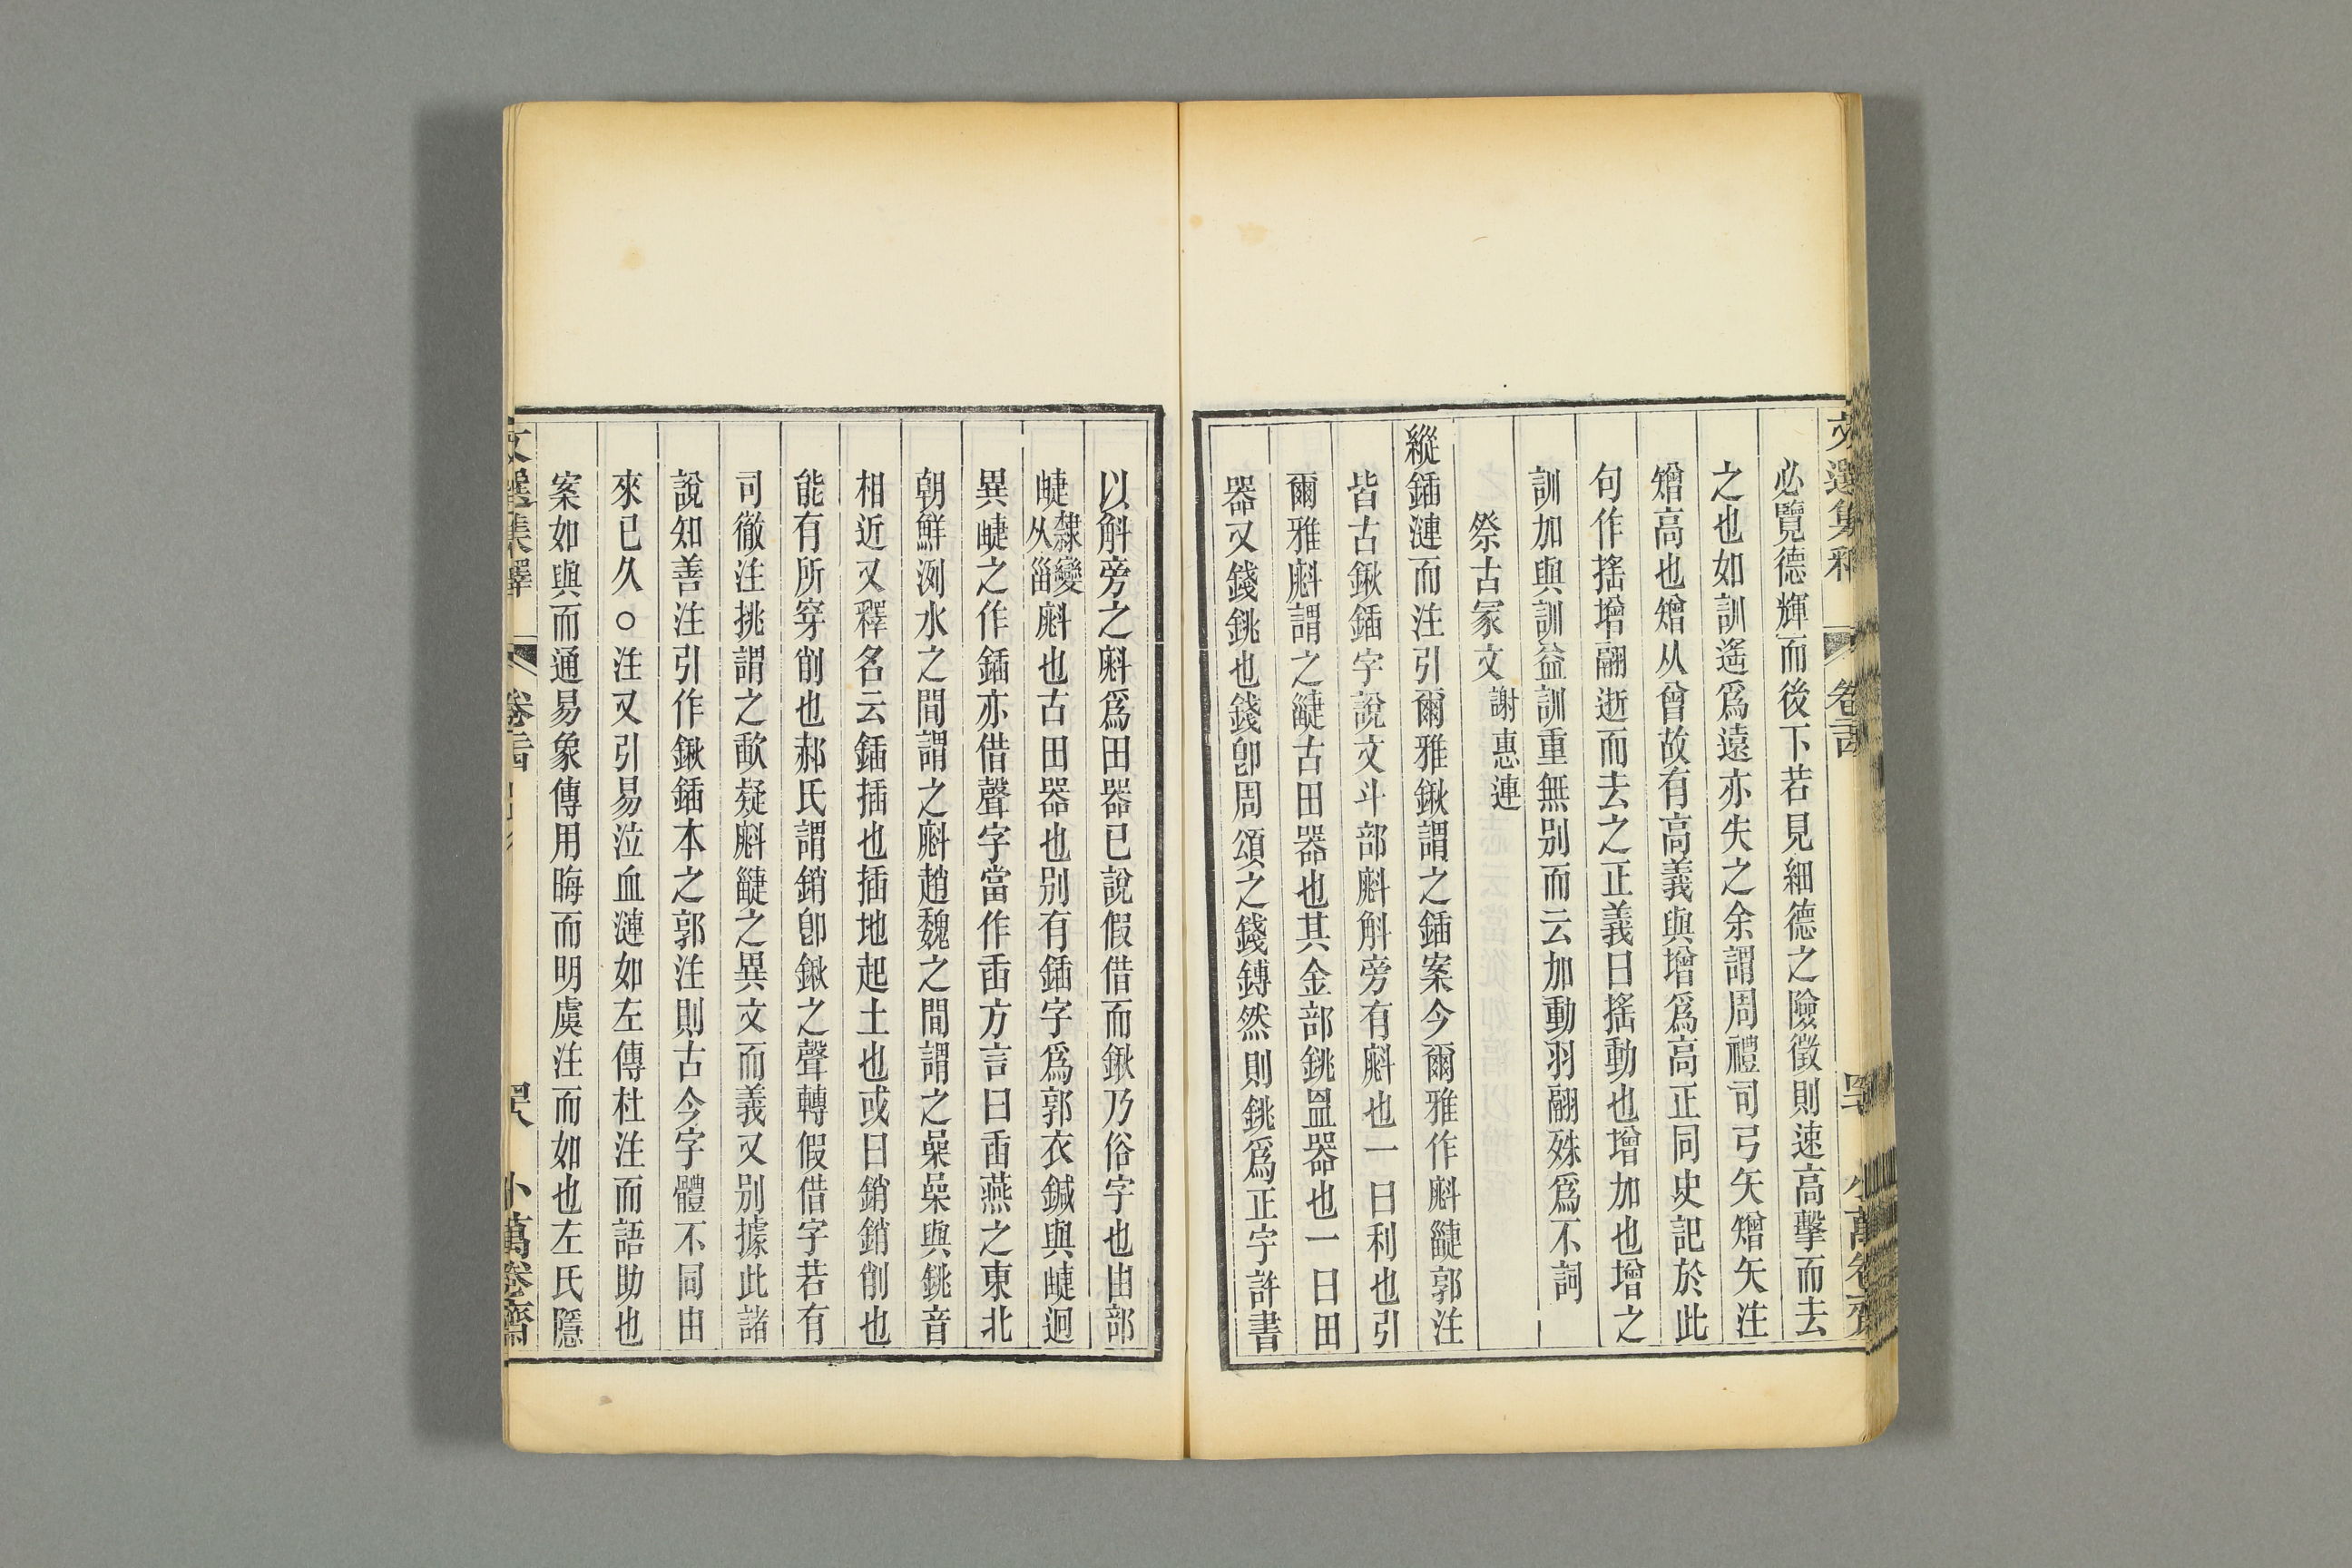 必覽德輝而後下若見細德之險徵則速高擊而去
之也如訓遙爲遠亦失之余謂周禮司弓矢矰矢注
矰高也矰从曾故有高義與增爲高正同史記於此
句作搖增翮逝而去之正義曰搖動也增加也增之
訓加與訓益訓重無别而云加動羽翮殊爲不詞
祭古冢文 謝惠連
縱鍤漣而注引爾雅鍬謂之鍤案今爾雅作㪺疀郭注
皆古鍬鍤字說文斗部㪺斛旁有㪺也一曰利也引
爾雅㪺謂之疀古田器也其金部銚𥁕器也一曰田
器又錢銚也錢卽周頌之錢鎛然則銚爲正字許書
以斛旁之㪺爲田器已說假借而鍬乃俗字也由部
㽟隸變从甾㪺也古田器也别有鍤字爲郭衣鍼與㽟迥
異㽟之作鍤亦借聲字當作臿方言曰臿燕之東北
朝鮮洌水之間謂之㪺趙魏之間謂之喿喿與銚音
相近又釋名云鍤插也插地起土也或曰銷銷削也
能有所穿削也郝氏謂銷卽鍬之聲轉假借字若有
司徹注挑謂之歃疑㪺疀之異文而義又别據此諸
說知善注引作鍬鍤本之郭注則古今字體不同由
來已久○注又引易泣血漣如左傳杜注而語助也
案如與而通易象傳用晦而明虞注而如也左氏隱
文選集釋 卷二十四 小萬卷齋